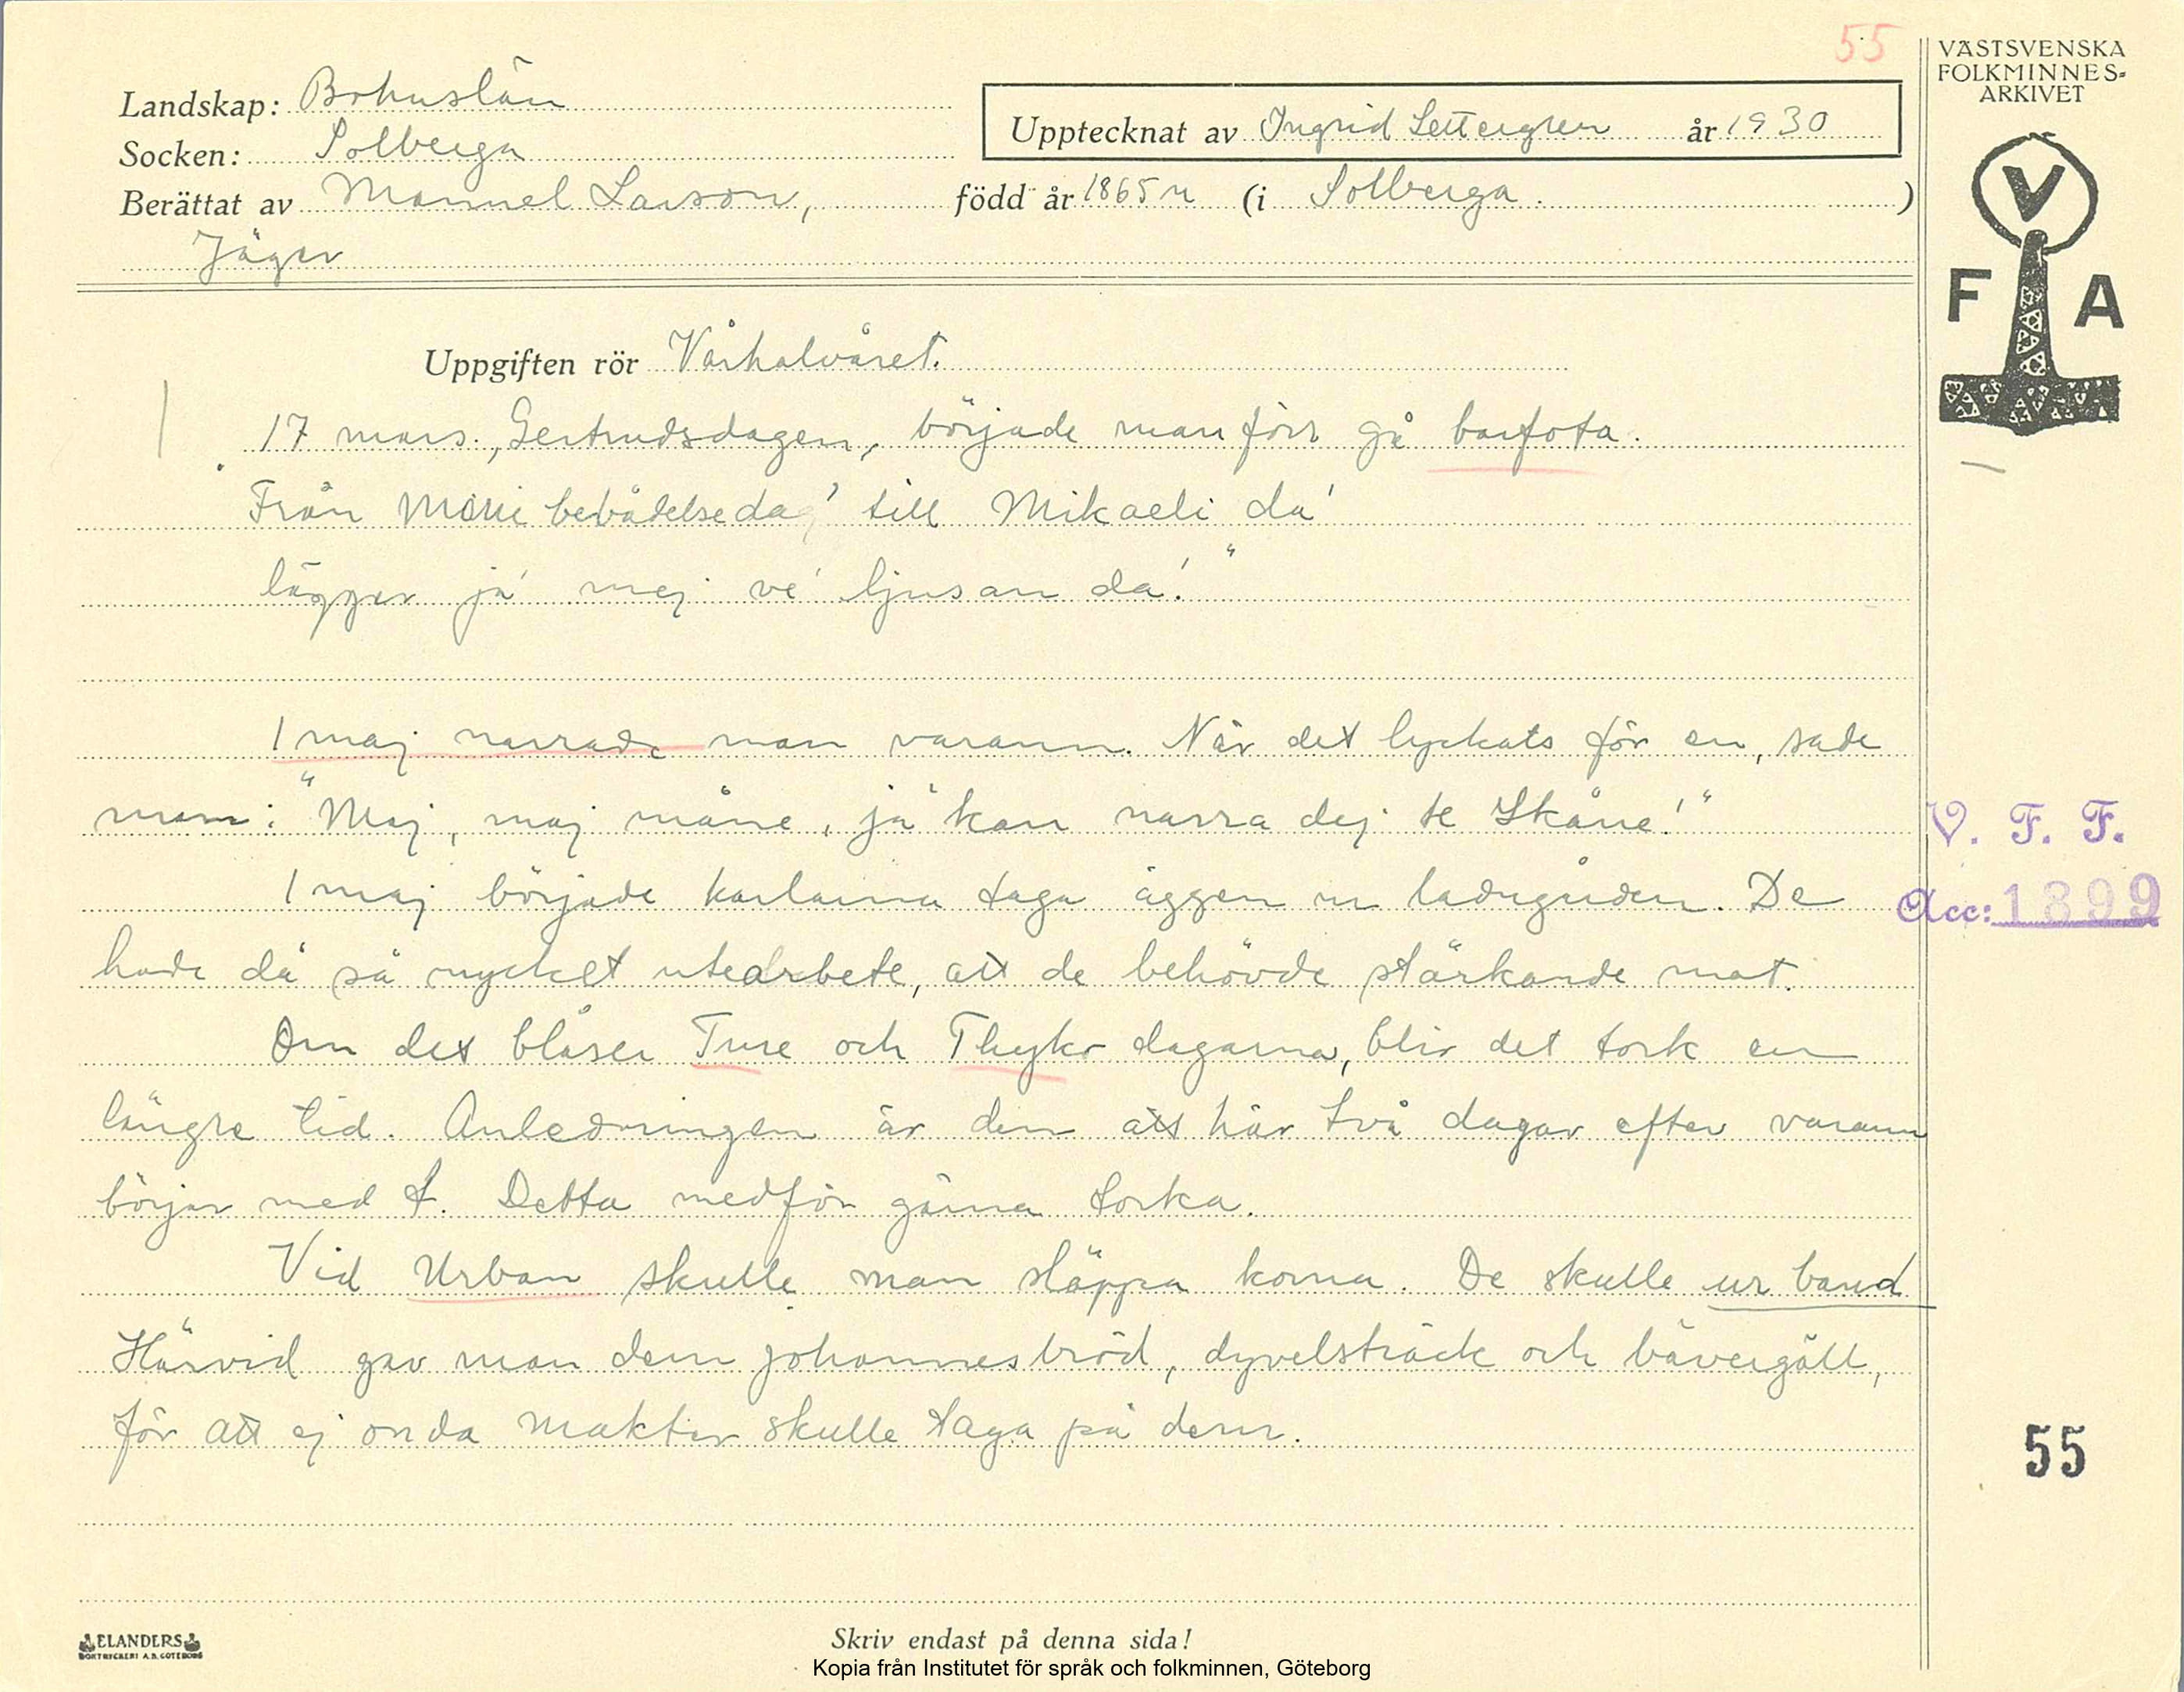 55
VÄSTSVENSKA
FOLKMINNES-
ARKIVET
Landskap: Bohuslän
Upptecknat av Ingrid Settergren år 1930
Socken: Solberga
Berättat av Manuel Larson, född år 1865 (i Solberga.)
Jäger
V
F A
Uppgiften rör Vårhalvåret.
17 mars, Gertrudsdagen, började man förr gå barfota.
Från Marie bebådelseda' till Mikaeli da'
lägger ja' mej ve' ljusan da'!"
1 maj narrade man varann. När det lyckats för en, sade
man: "Maj, maj måne, ja' kan narra dej te Skåne!"
V. F. F.
1 maj började karlarna taga äggen ur ladugården. De
Acc: 1899
hade då så mycket utearbete, att de behövde stärkande mat.
Om det blåser Ture och Thyko dagarna, blir det tork en
längre tid. Anledningen är den att här två dagar efter varann
börjar med t. Detta medför gärna torka.
Vid Urban skulle man släppa korna. De skulle ur band
Härvid gav man dem johannesbröd, dyvelsträck och bävergäll,
för att ej onda makter skulle taga på dem.
55
ELANDERS
BOKTRYCKERI A.B. GÖTEBORG
Skriv endast på denna sida!
Kopia från Institutet för språk och folkminnen, Göteborg